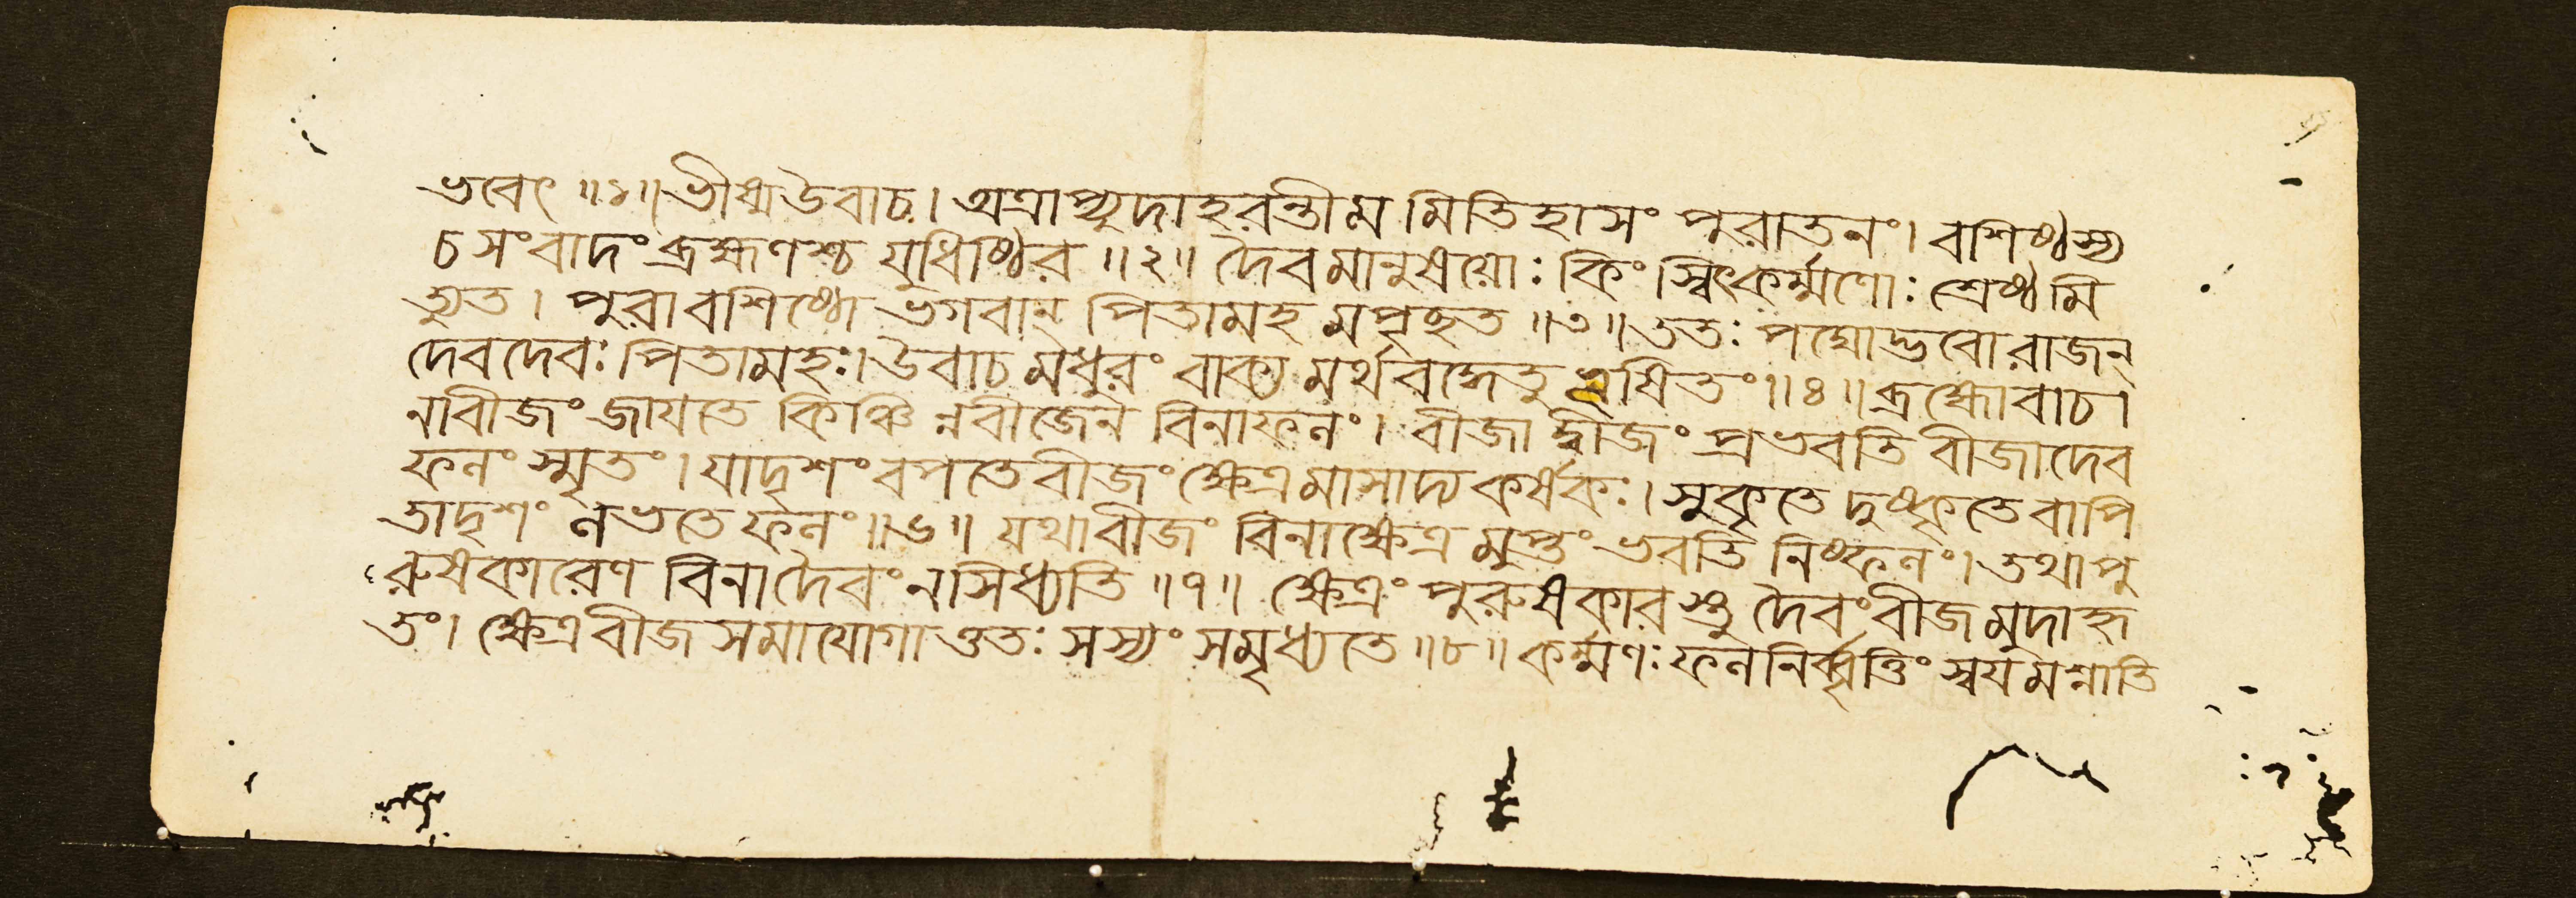 ভবেৎ ॥১॥ ভীষ্ম উবাচ। অত্রাপ্যুদাহরন্তীমমিতিহাসং পুরাতনং। বশিষ্ঠস্য
চ সংবাদং ব্রহ্মণশ্চ যুধিষ্ঠির ॥২॥ দৈবমানুষয়োঃ কিং স্বিৎকর্ম্মণোঃ শ্রেষ্ঠমি
ত্যুত। পুরা বশিষ্ঠো ভগবান্ পিতামহমপৃচ্ছত ॥৩॥ ততঃ পদ্মোদ্ভবো রাজন্
দেবদেবঃ পিতামহঃ। উবাচ মধুরং বাক্যমর্থবদ্ধেতুভূষিতং॥৪॥ ব্রহ্মোবাচ।
নাবীজং জাযতে কিঞ্চিন্নবীজেন বিনাফলং। বীজাদ্বীজং প্রভবতি বীজাদেব
ফলং স্মৃতং। যাদৃশং বপতে বীজং ক্ষেত্রমাসাদ্য কর্ষকঃ। সুকৃতে দুষ্কৃতে বাপি
তাদৃশং লভতে ফলং॥৬॥ যথা বীজং বিনা ক্ষেত্রমুপ্তং ভবতি নিষ্ফলং। তথা পু
রুষকারেণ বিনা দৈবং ন সিধ্যতি ॥৭॥ ক্ষেত্রং পুরুষকারস্তু দৈবং বীজমুদাহৃ
তং। ক্ষেত্রবীজসমাযোগাত্ততঃ সস্যং সমৃধ্যতে ॥৮॥ কর্ম্মণঃ ফলনির্ব্বৃত্তিং স্বযমশ্নাতি